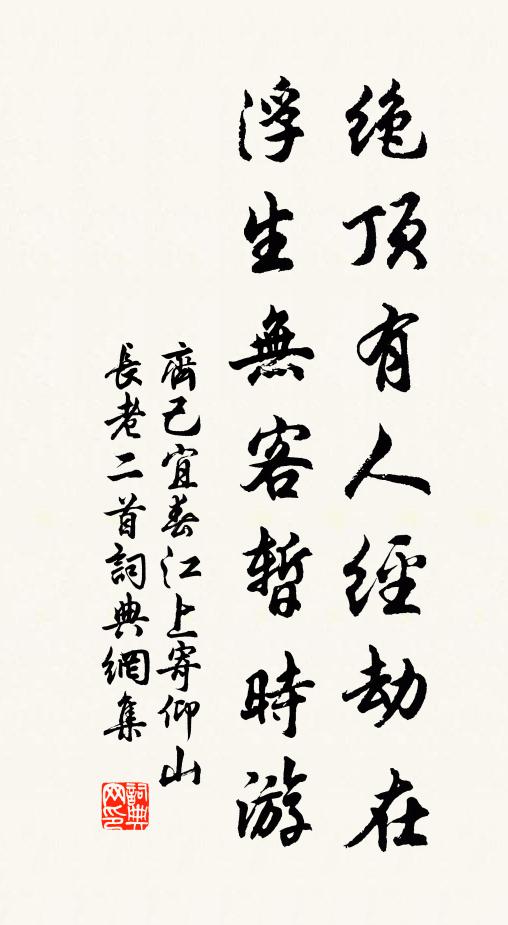 绝顶有人經劫在
浮生無客暫時游
齊己宜春江上寄仰山
長老二首詞典網集
詞典
网印